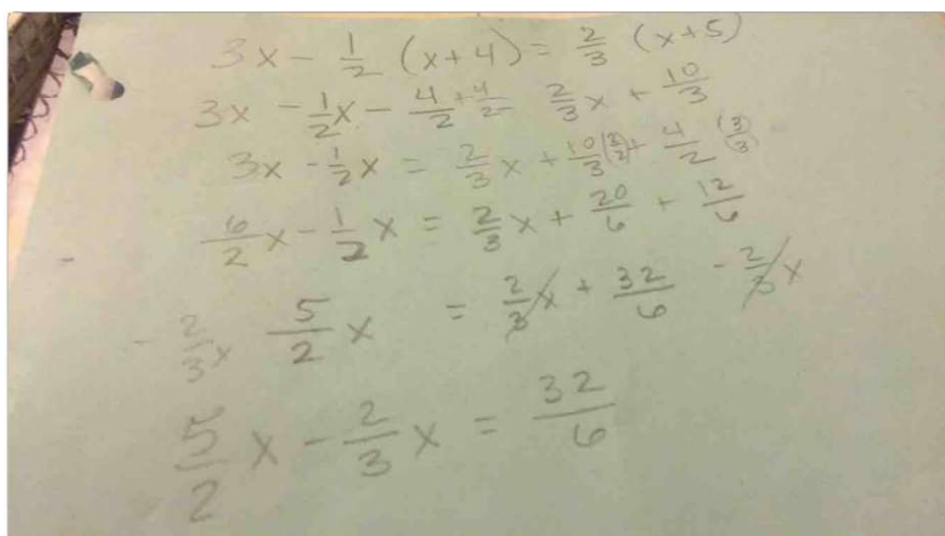 3x - 1/2 (x+4) = 2/3 (x+5)
3x - 1/2x - 4/2 + 4/2 = 2/3x + 10/3
3x - 1/2x = 2/3x + 10/3 (2/2) + 4/2 (3/3)
6/2x - 1/2x = 2/3x + 20/6 + 12/6
- 2/3x 5/2x = 2/3x + 32/6 - 2/3x
5/2x - 2/3x = 32/6